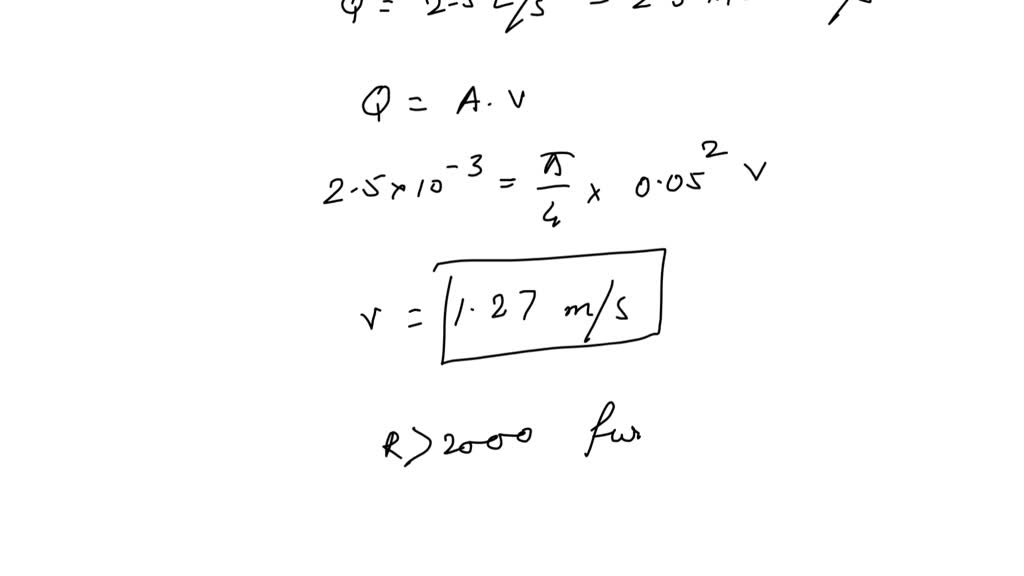 Q = 2.5 L/s = 2.5
Q = A. V
2.5 × 10^-3 = π/4 × 0.05^2 V
V = 1.27 m/s
R > 2000 fur